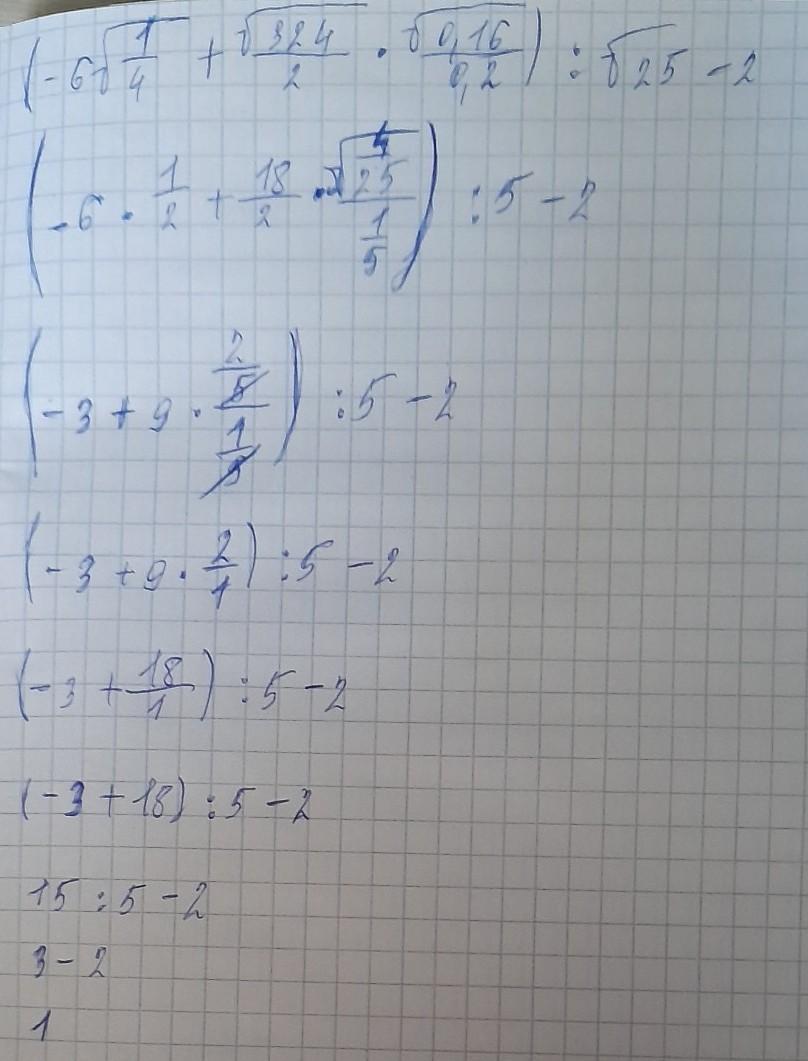 (-6√(1/4) + √324/2 · √0,16/0,2) : √25 - 2
(-6 · 1/2 + 18/2 · √(4/25)/(1/5)) : 5 - 2
(-3 + 9 · (2/5)/(1/5)) : 5 - 2
(-3 + 9 · 2/1) : 5 - 2
(-3 + 18/1) : 5 - 2
(-3 + 18) : 5 - 2
15 : 5 - 2
3 - 2
1